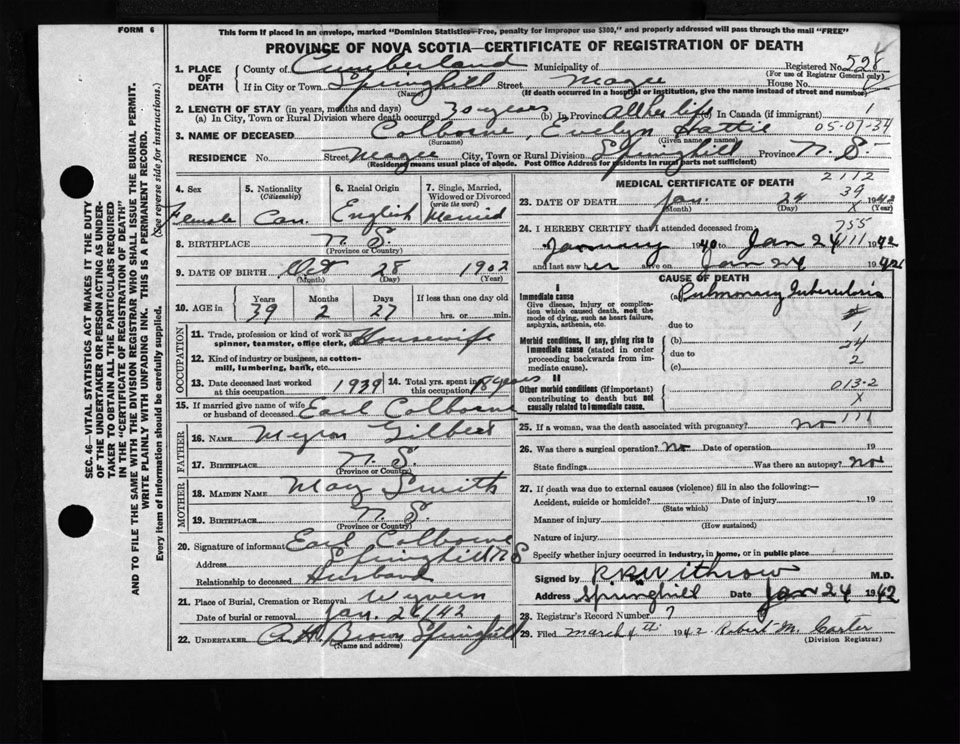 FORM 6
This form if placed in an envelope, marked "Dominion Statistics—Free, penalty for improper use $300," and properly addressed will pass through the mail "FREE"
PROVINCE OF NOVA SCOTIA—CERTIFICATE OF REGISTRATION OF DEATH
SEC. 46—VITAL STATISTICS ACT MAKES IT THE DUTY
OF THE UNDERTAKER OR PERSON ACTING AS UNDER-
TAKER TO OBTAIN ALL THE PARTICULARS REQUIRED
IN THE "CERTIFICATE OF REGISTRATION OF DEATH"
AND TO FILE THE SAME WITH THE DIVISION REGISTRAR WHO SHALL ISSUE THE BURIAL PERMIT.
WRITE PLAINLY WITH UNFADING INK. THIS IS A PERMANENT RECORD.
Every item of information should be carefully supplied. (See reverse side for instructions.)
1. PLACE OF DEATH
County of Cumberland Municipality of Registered No. 528
(For use of Registrar General only)
If in City or Town Springhill Street Magee House No.
(Name) (If death occurred in a hospital or institution, give the name instead of street and number)
2. LENGTH OF STAY (in years, months and days)
(a) In City, Town or Rural Division where death occurred 30 years (b) In Province All her life (c) In Canada (if immigrant) 1
3. NAME OF DECEASED Colborne, Evelyn Hattie 05-07-34
(Surname) (Given name or names)
RESIDENCE No. Street Magee City, Town or Rural Division Springhill Province N.S.
(Residence means usual place of abode. Post Office Address for residents in rural parts not sufficient)
4. Sex Female
5. Nationality (Citizenship) Can.
6. Racial Origin English
7. Single, Married, Widowed or Divorced (write the word) Married
8. BIRTHPLACE N.S.
(Province or Country)
9. DATE OF BIRTH Oct 28 1902
(Month) (Day) (Year)
10. AGE in Years 39 Months 2 Days 27 If less than one day old hrs. or min.
OCCUPATION
11. Trade, profession or kind of work as spinner, teamster, office clerk, Housewife
12. Kind of industry or business, as cotton-mill, lumbering, bank, etc.
13. Date deceased last worked at this occupation 1939
14. Total yrs. spent in this occupation 18 years
15. If married give name of wife or husband of deceased Earl Colborne
FATHER
16. NAME Myron Gilbert
17. BIRTHPLACE N.S.
(Province or Country)
MOTHER
18. MAIDEN NAME May Smith
19. BIRTHPLACE N.S.
(Province or Country)
20. Signature of informant Earl Colborne
Address Springhill N S
Relationship to deceased Husband
21. Place of Burial, Cremation or Removal Wyvern
Date of burial or removal Jan. 26/42
22. UNDERTAKER A.H. Brown Springhill
(Name and address)
MEDICAL CERTIFICATE OF DEATH 2112
39
23. DATE OF DEATH Jan. 24 1942
(Month) (Day) X
24. I HEREBY CERTIFY that I attended deceased from: 755
January 1940 to Jan 24 1942
111
and last saw her alive on Jan 24 1942
CAUSE OF DEATH
I
Immediate cause
Give disease, injury or complication which caused death, not the mode of dying, such as heart failure, asphyxia, asthenia, etc.
(a) Pulmonary Tuberculosis
due to 1
Morbid conditions, if any, giving rise to immediate cause (stated in order proceeding backwards from immediate cause).
(b) 24
due to 2
(c)
II
Other morbid conditions (if important) contributing to death but not causally related to immediate cause.
013-2
X
25. If a woman, was the death associated with pregnancy? No 111
26. Was there a surgical operation? No Date of operation 19
State findings Was there an autopsy? No
27. If death was due to external causes (violence) fill in also the following:—
Accident, suicide or homicide? Date of injury 19
(State which)
Manner of injury
(How sustained)
Nature of injury
Specify whether injury occurred in industry, in home, or in public place
Signed by R.R. Withrow M.D.
Address Springhill Date Jan 24 1942
28. Registrar's Record Number 7
29. Filed March 4th 1942 Robert M. Carter
(Division Registrar)